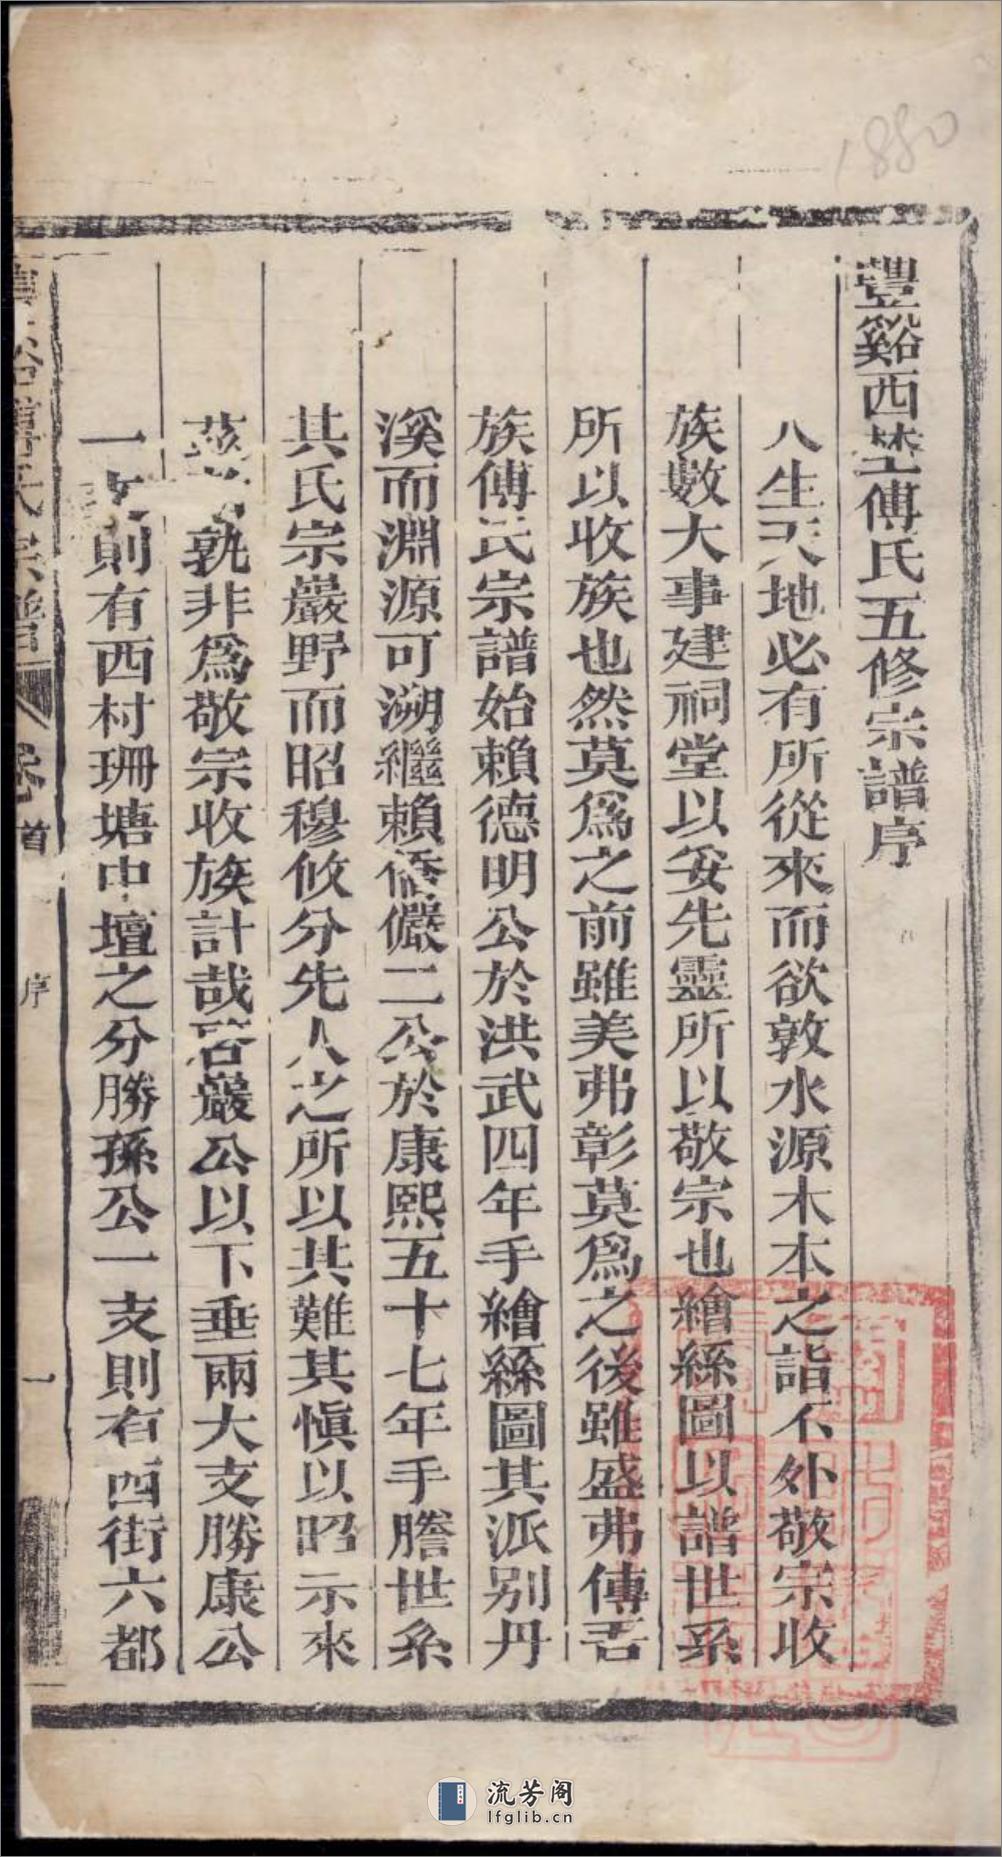 1880
豐谿西塋傅氏五修宗譜序
人生天地必有所從來而欲敦水源木本之誼不外敬宗收
族數大事建祠堂以妥先靈所以敬宗也繪絲圖以譜世系
所以收族也然莫爲之前雖美弗彰莫爲之後雖盛弗傳吾
族傅氏宗譜始賴德明公於洪武四年手繪絲圖其派别丹
溪而淵源可溯繼賴儒儼二公於康熙五十七年手謄世系
其氏宗嚴野而昭穆攸分先人之所以共難其愼以昭示來
孰非爲敬宗收族計哉啓巖公以下垂兩大支勝康公
一支則有西村珊塘中壇之分勝孫公一支則有西街六都
傅氏宗譜
卷首
序
一
流芳阁
lfglib.cn